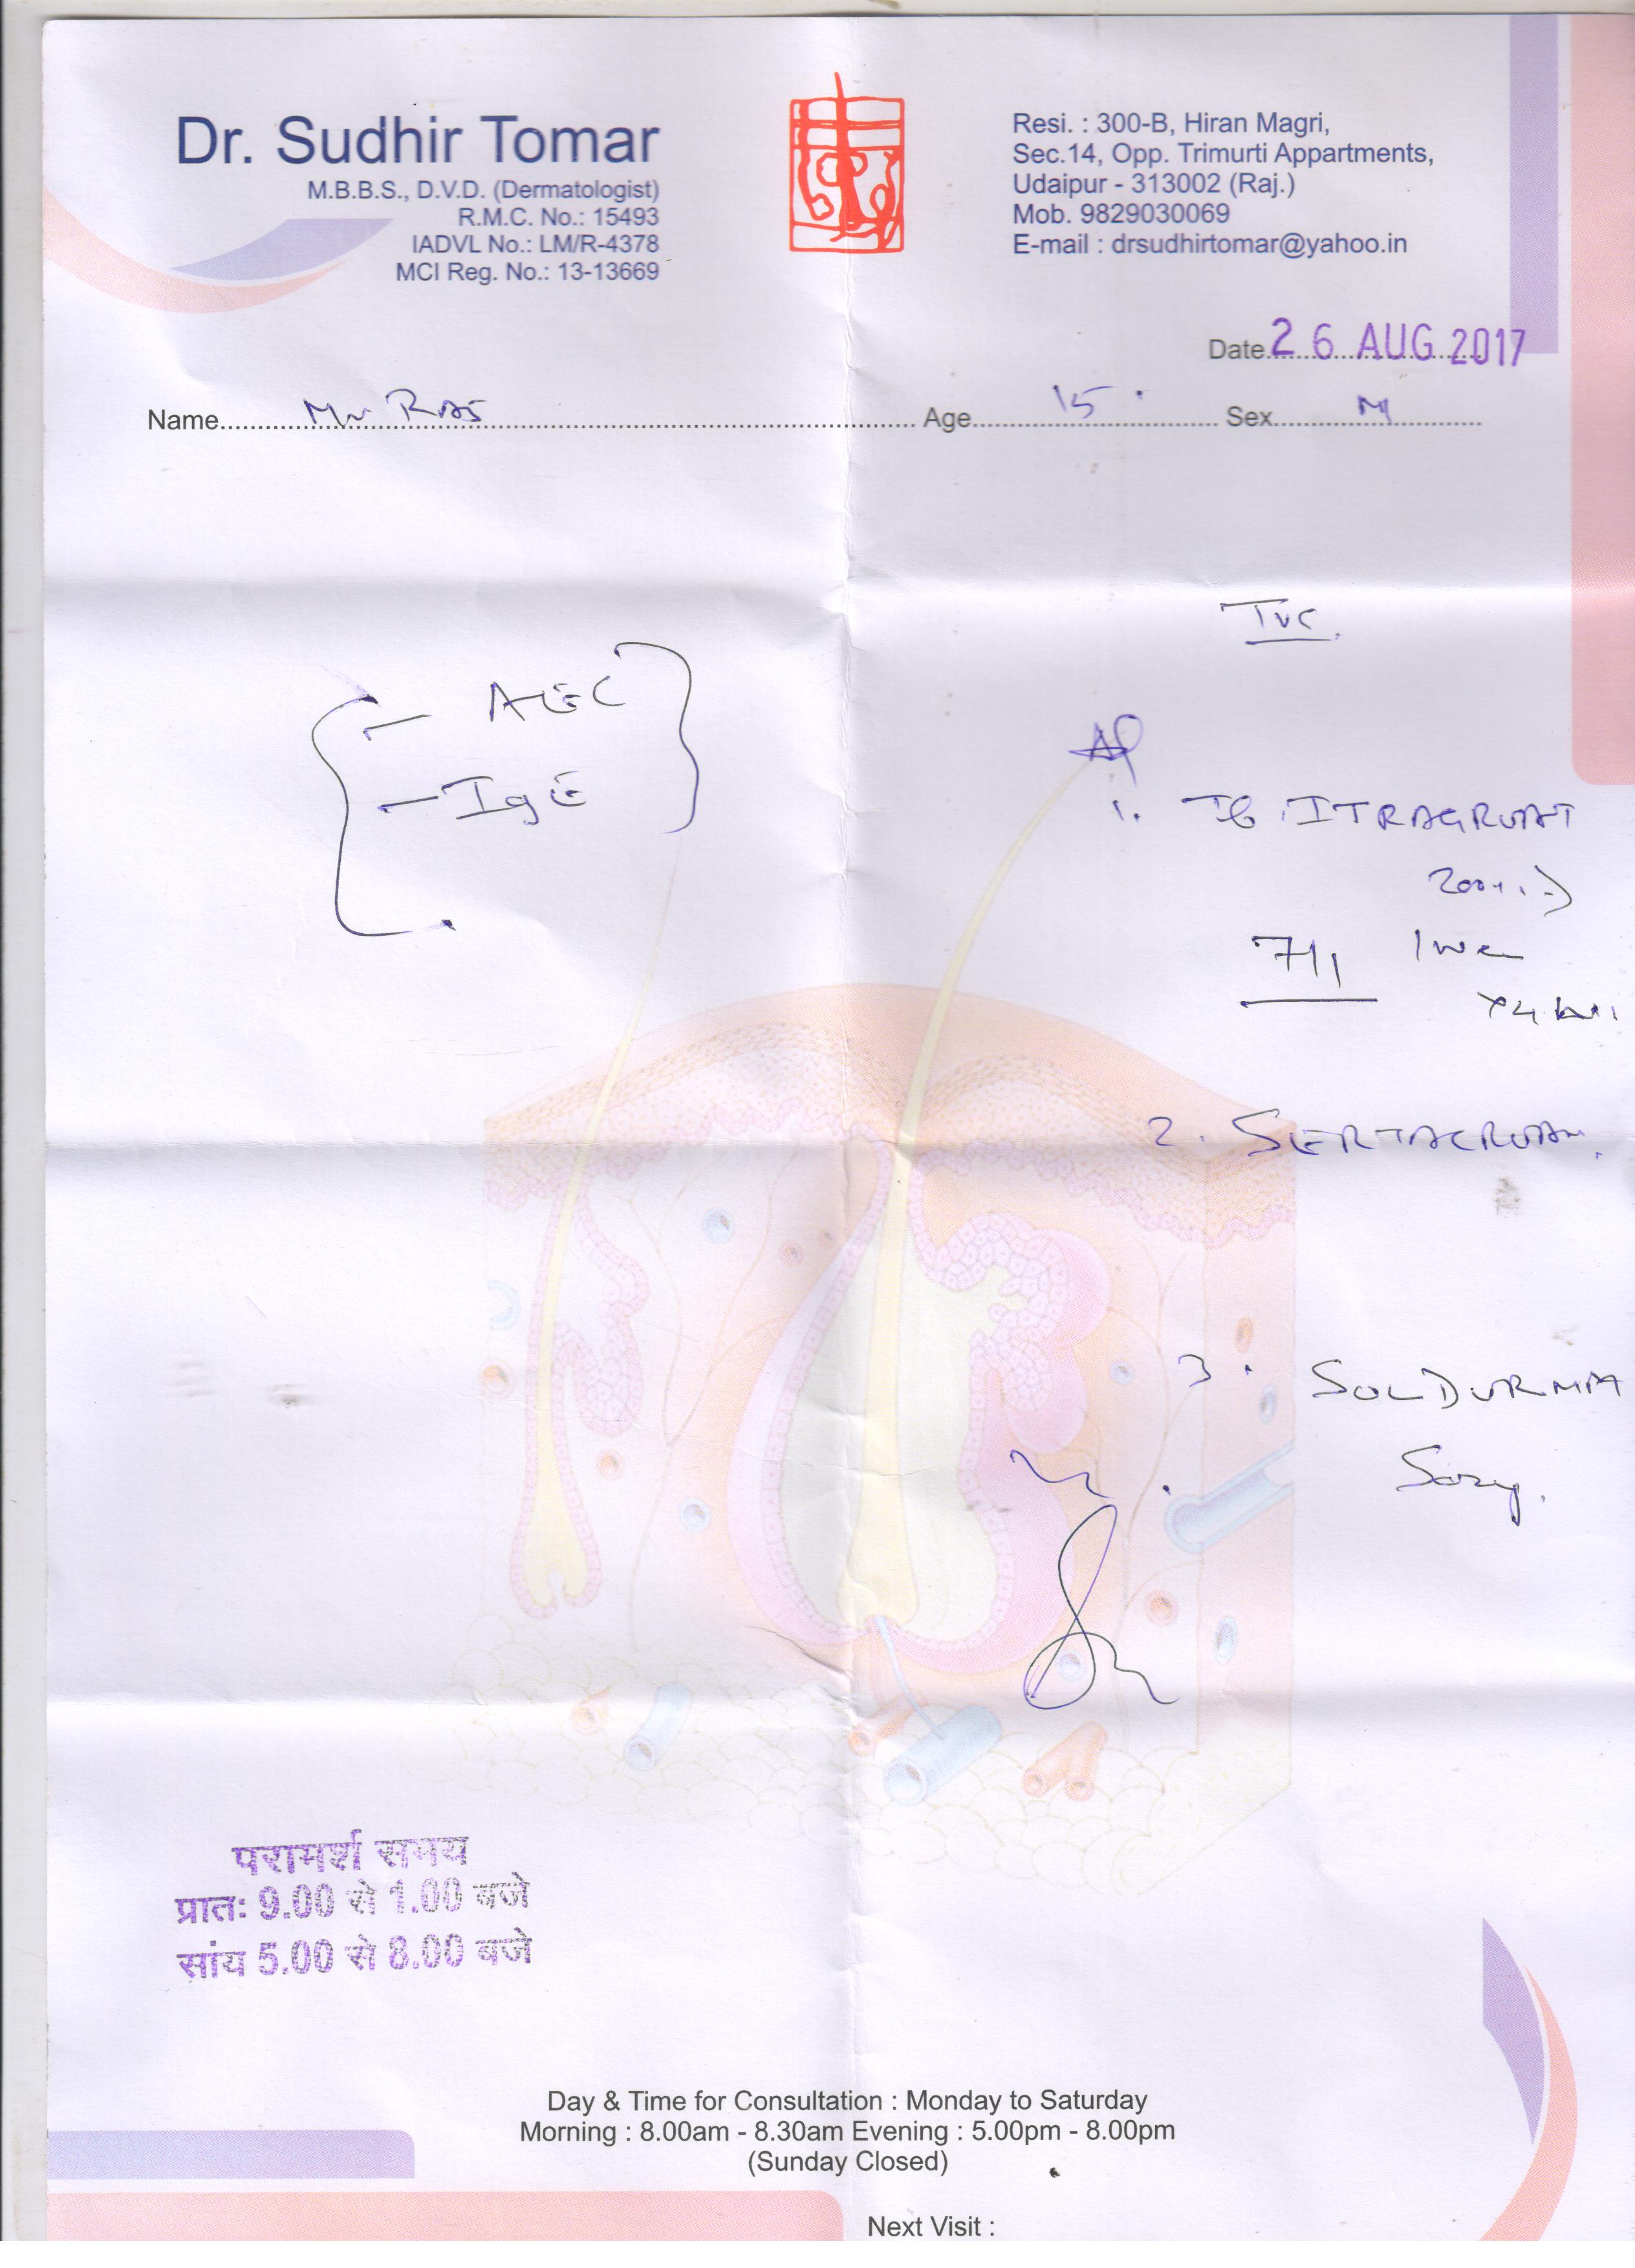 Dr. Sudhir Tomar
M.B.B.S., D.V.D. (Dermatologist)
R.M.C. No.: 15493
IADVL No.: LM/R-4378
MCI Reg. No.: 13-13669
Resi. : 300-B, Hiran Magri,
Sec.14, Opp. Trimurti Appartments,
Udaipur - 313002 (Raj.)
Mob. 9829030069
E-mail : drsudhirtomar@yahoo.in
Date 26 AUG 2017
Name Mr Raj Age 15 Sex M
- AEC
- IgE
1.
200
2.
3.
परामर्श समय
प्रातः 9.00 से 1.00 बजे
सांय 5.00 से 8.00 बजे
Day & Time for Consultation : Monday to Saturday
Morning : 8.00am - 8.30am Evening : 5.00pm - 8.00pm
(Sunday Closed)
Next Visit :